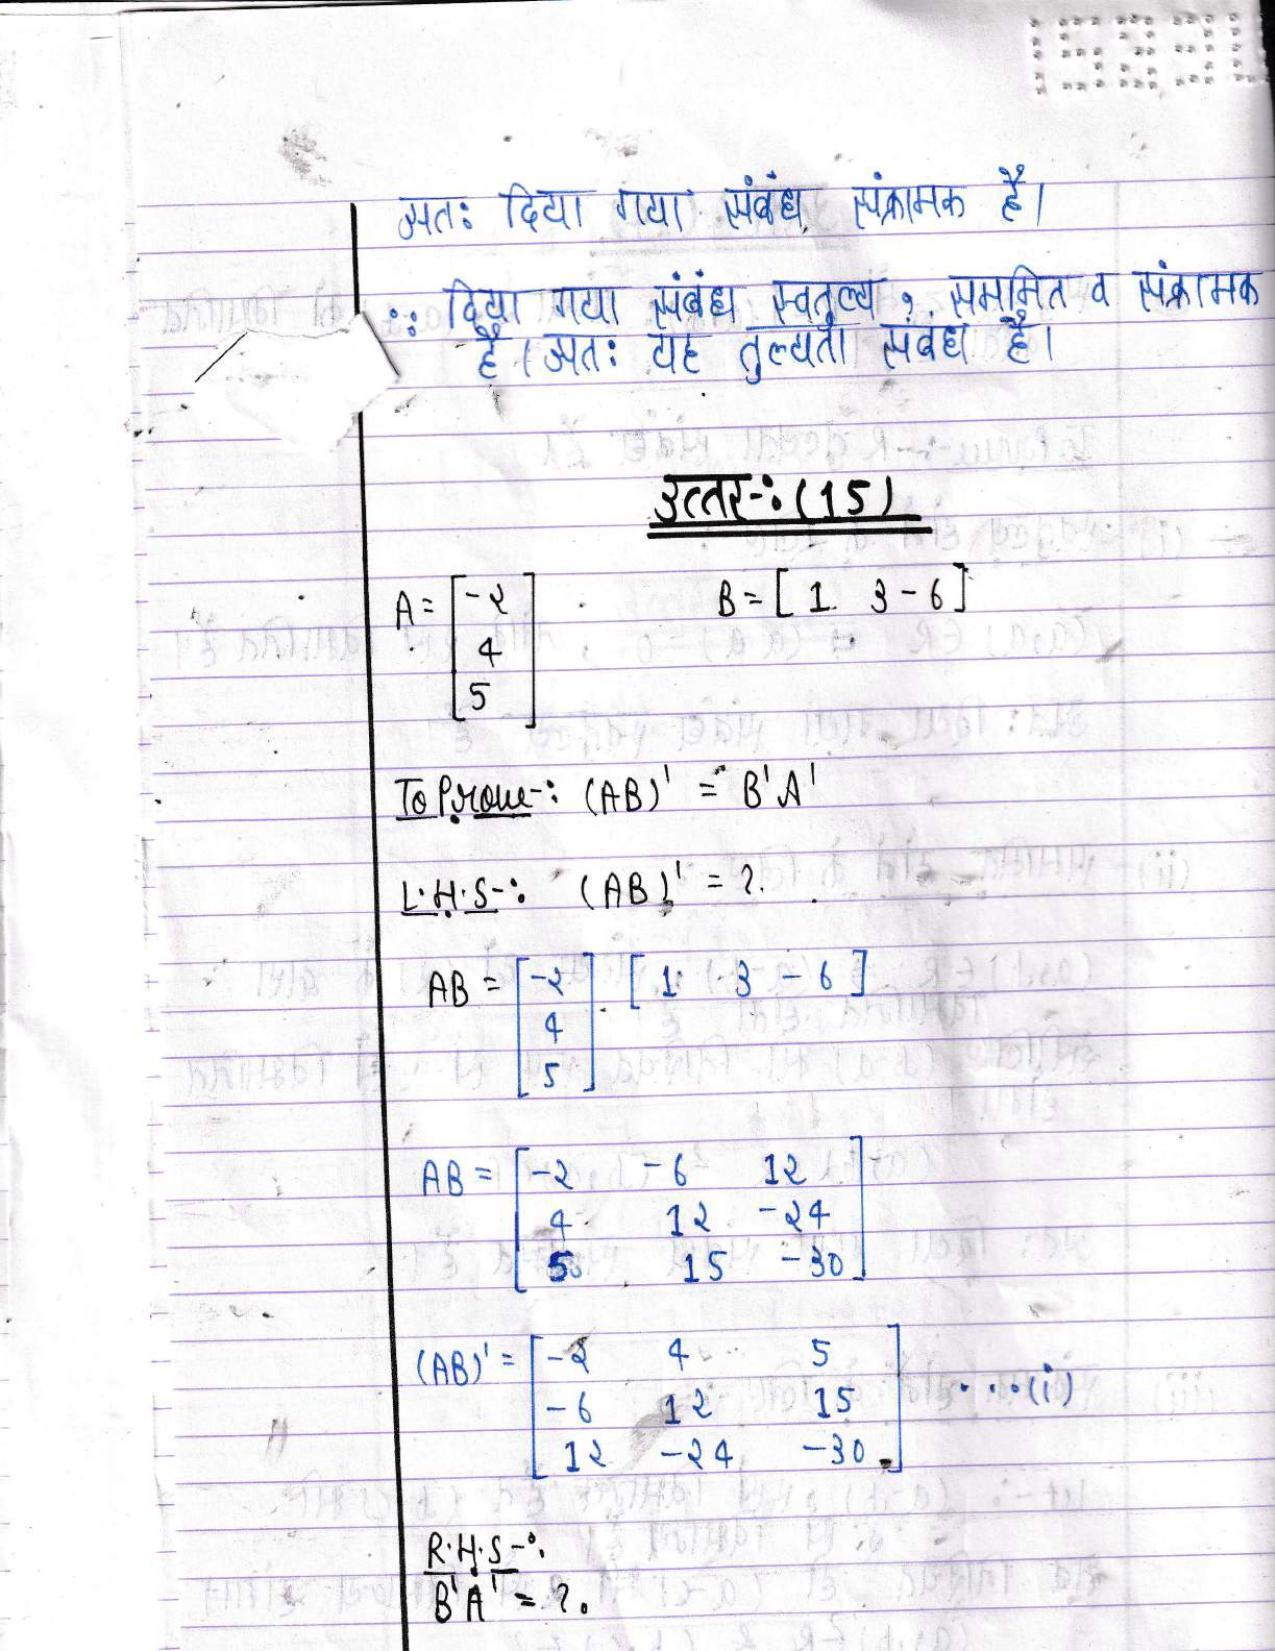 अतः दिया गया संबंध संक्रामक है।
∵ दिया गया संबंध स्वतुल्य, सममित व संक्रामक
है। अतः यह तुल्यता संबंध है।
उत्तर-:(15)
A = [-2 B = [1 3 -6]
4
5]
To Prove-: (AB)' = B'A'
L.H.S-: (AB)' = ?.
AB = [-2 . [1 3 -6]
4
5]
AB = [-2 -6 12
4 12 -24
5 15 -30]
(AB)' = [-2 4 5
-6 12 15 ....(i)
12 -24 -30]
R.H.S-:
B'A' = ?.